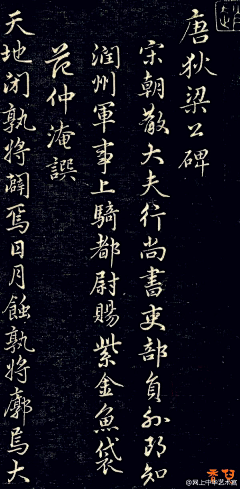 唐狄梁公碑
宋朝散大夫行尚書吏部員外郎知
潤州軍事上騎都尉賜紫金魚袋
范仲淹譔
天地閉孰將闢焉日月蝕孰將廓焉大
@网上中华艺术家